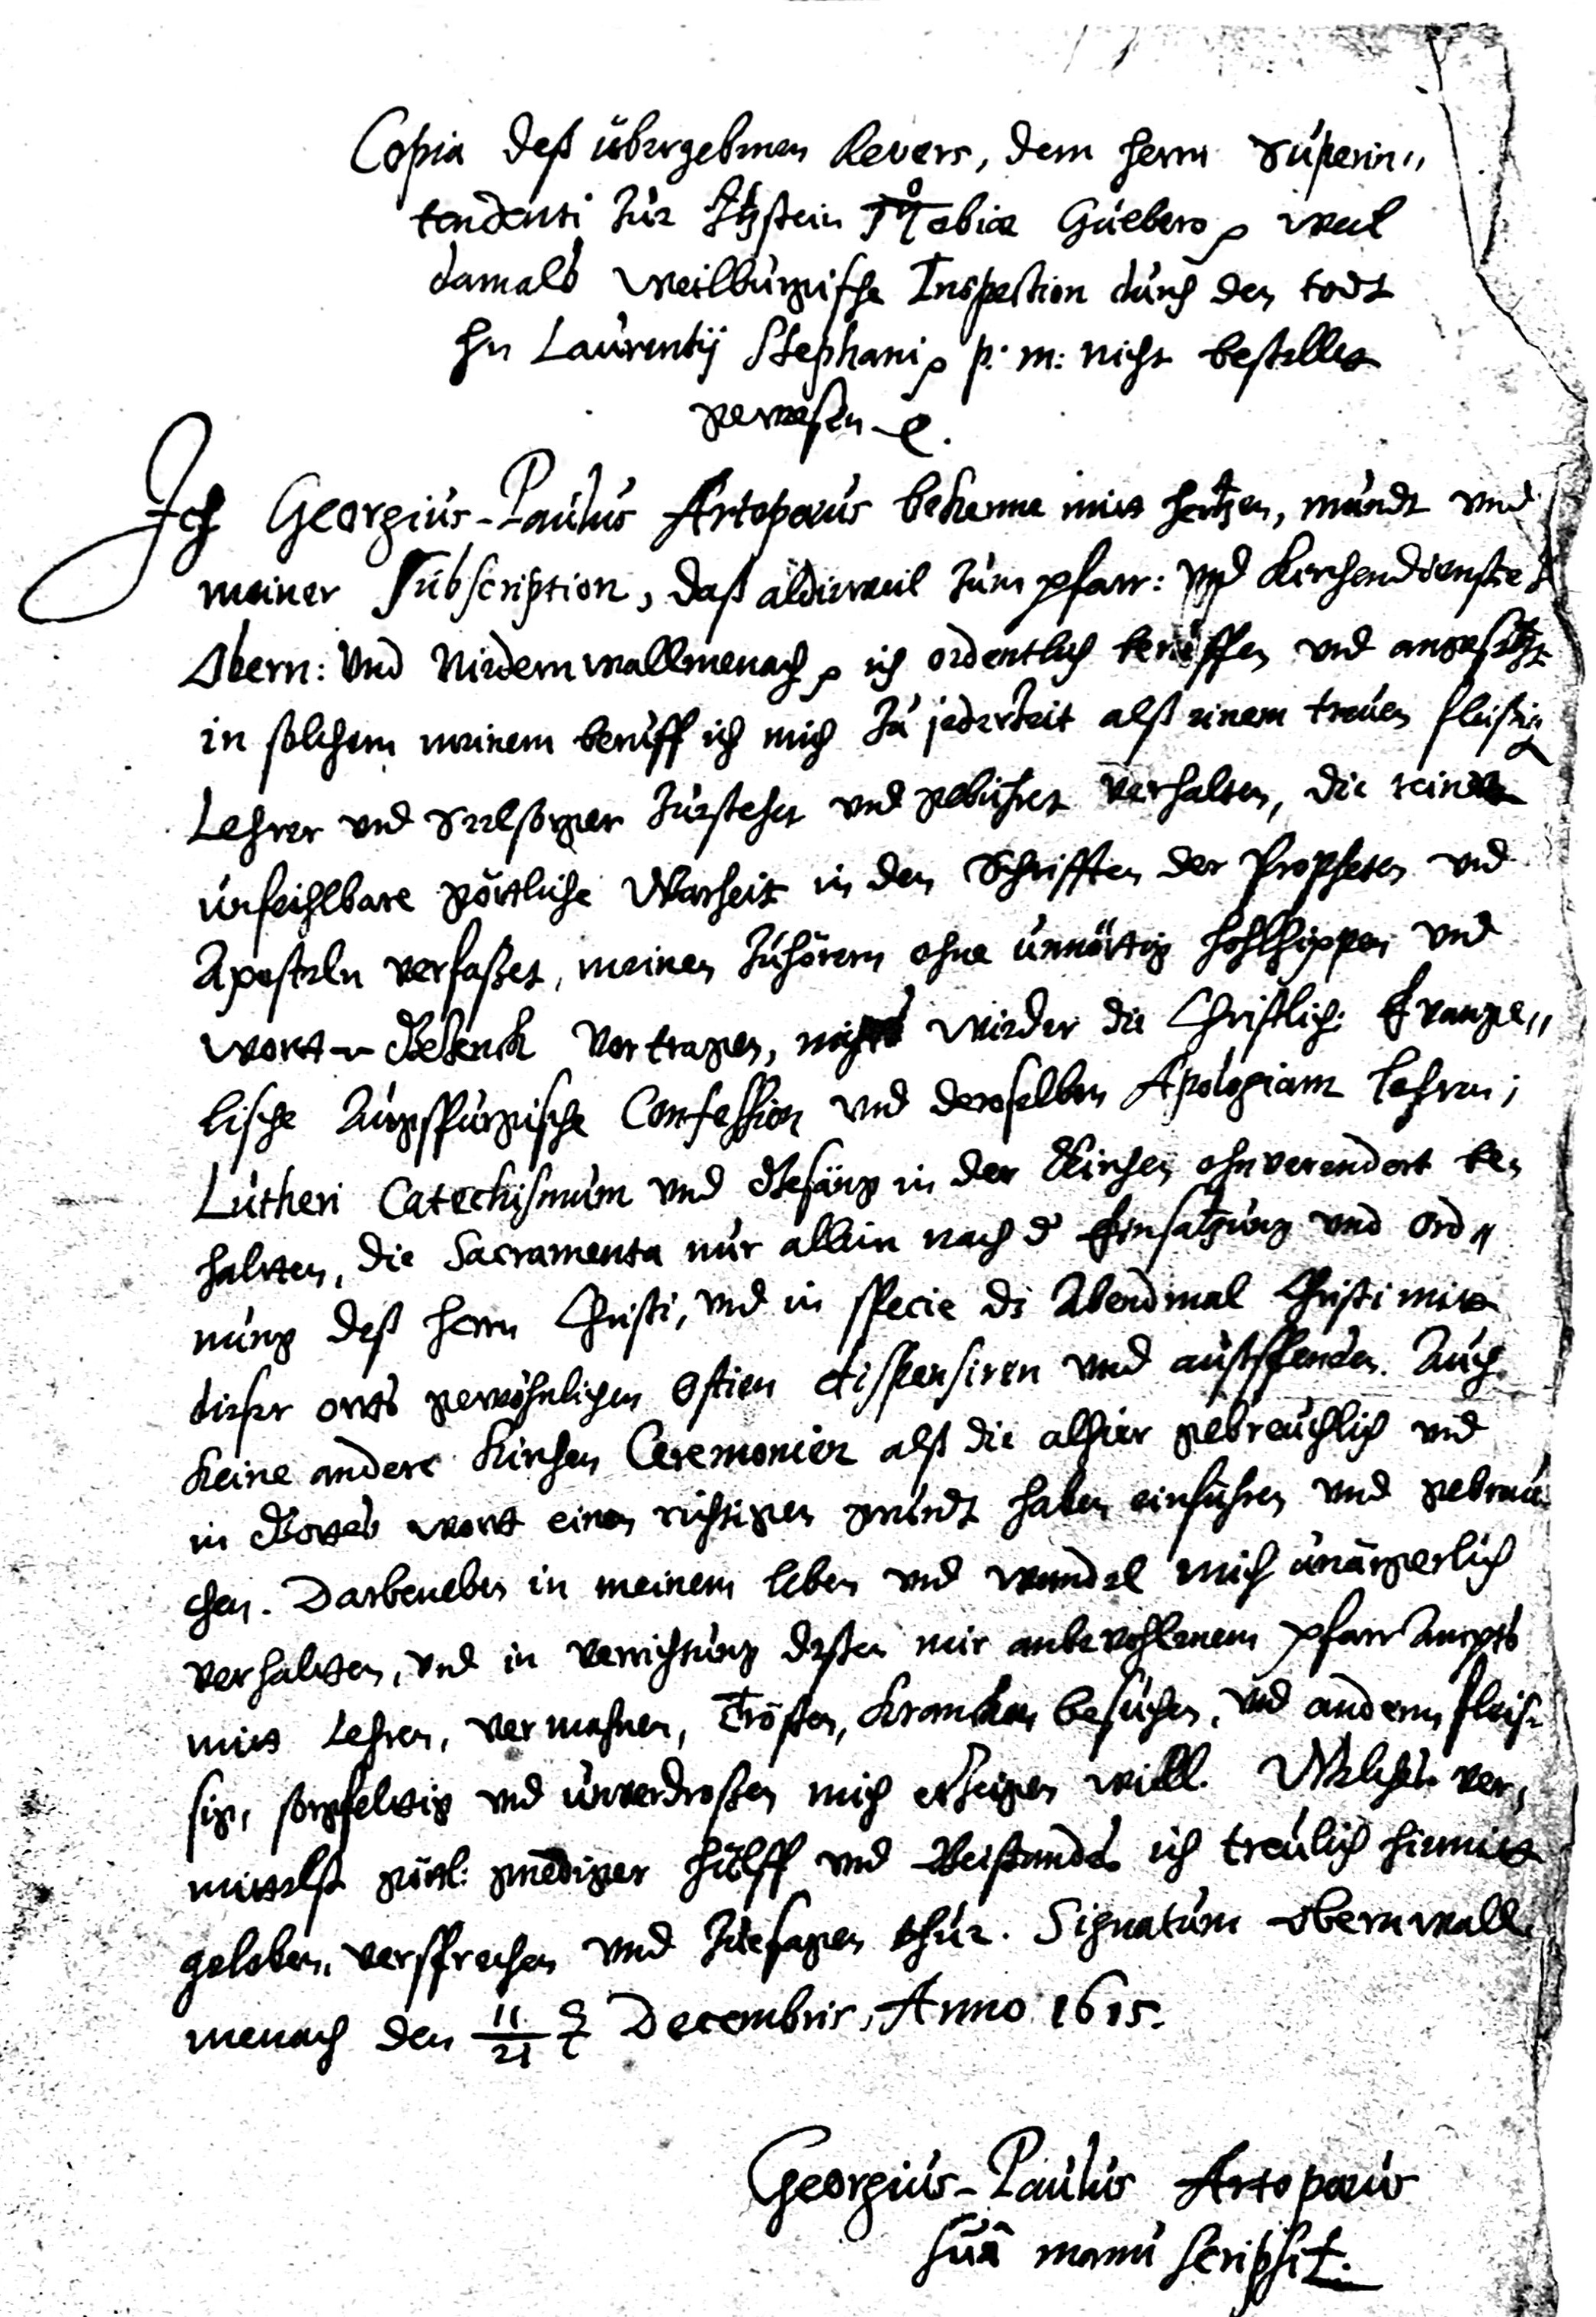 Copia deß übergebenen Revers, dem herrn Superin„
tendenti zur Itzstein Tobiæ Guebero, weil
damals Weilburgische Inspection durch den todt
hn Laurentij Stephani, p. m: nicht bestellet
gewesen
Ich Georgius-Paulus Artopœus bekenne mitt hertzen, mundt vnd
meiner Subscription, daß aldieweil zum pfarr: vnd Kirchendienste
Obern: Vnd Niedernwallmenach, ich ordentlich beruffen vnd angesetzt
in solchem meinem beruff ich mich zu jederzeit alß einem treuen fleißig
Lehrer vnd Seelsorger zustehet vnd gebühret verhalten, die reine
unfeihlbare göttliche Warheit in den Schrifften der Propheten vnd
Aposteln verfaßet, meinen zuhörern ohne unnöttig hohlhippen vnd
wortt-Gezenck vortragen, nichts wieder die Christlich: Evange„
lische Augspurgische Confession vnd deroselben Apologiam lehren;
Lutheri Catechismum vnd Gesäng in der Kirchen ohnverendert be
haltten, die Sacramenta nur allein nach d' Einsatzung vnd Ord„
nung deß Herrn Christi, vnd in specie ds Abendmal Christi mitt
dieser orts gewöhnlichen Ostien dispensiren vnd außspenden. Auch
Keine andere Kirchen Ceremonien alß die alhier gebreuchlich vnd
in Gottes wortt einen richtigen grundt haben einführen vnd gebrau
chen. Darbeneben in meinem leben vnd wandel mich unärgerlich
verhaltten, vnd in verrichtung deßen mir anbevohlenem pfarrAmpts
mitt Lehren, vermahnen, Trösten, Krancken besuchen, vnd anderm fleis„
sig, sorgfeltig vnd unverdroßen mich erzeigen will. Welches ver,
mittelst göttl: gnediger hülff vnd Beistandes ich treulich hiemitt
geloben, versprechen vnd zuesagen thue. Signatum Obernwall
menach den 11/21 Decembris, Anno 1615.
Georgius-Paulus Artopœus
suâ manu scripsit.